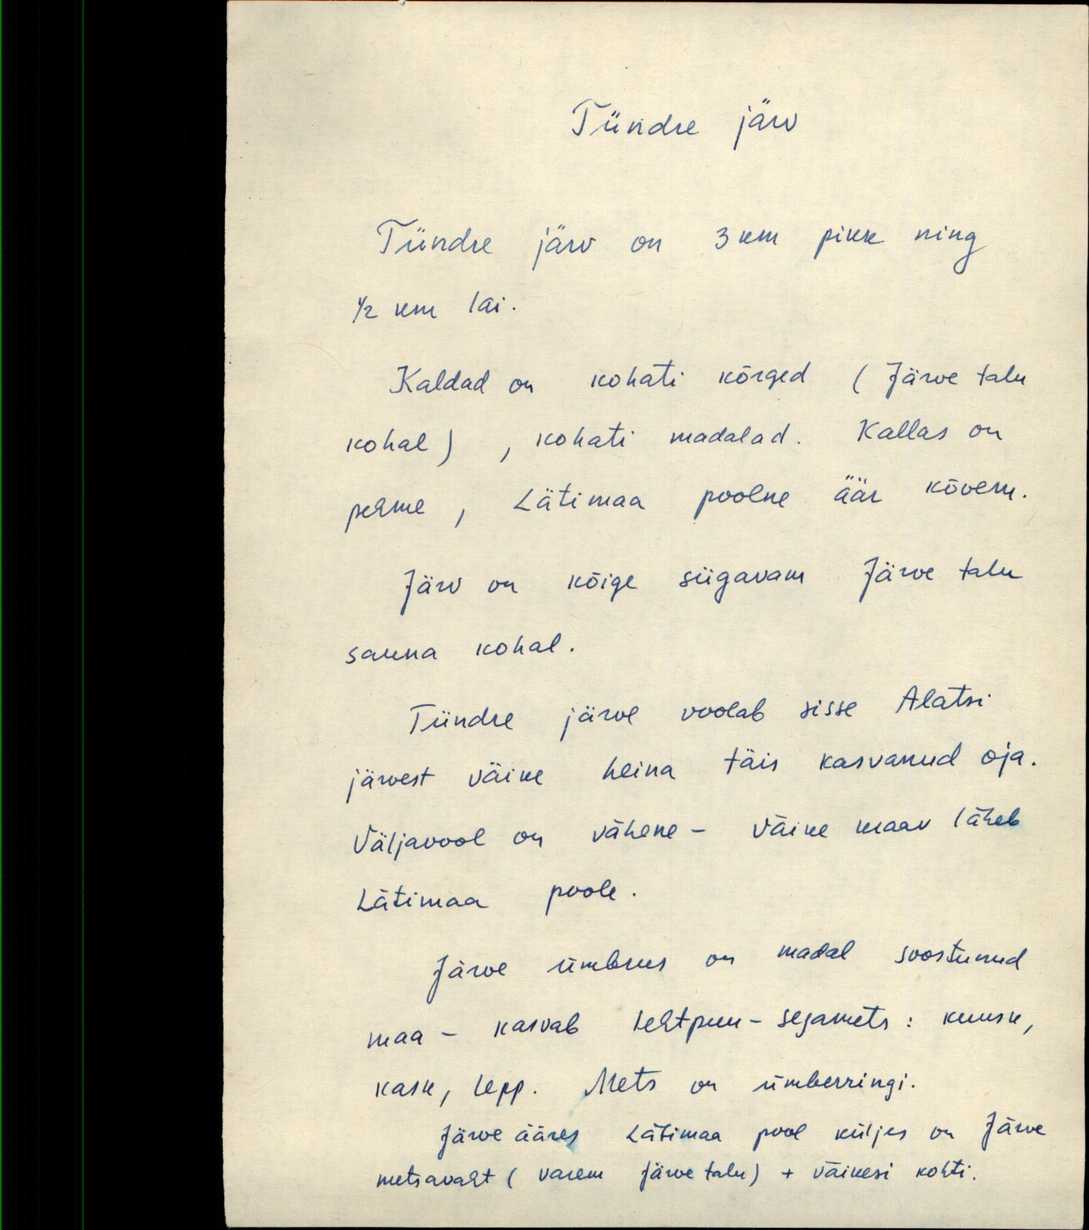 Tündre järv
Tündre järv on 3 km pikk ning
1/2 km lai.
Kaldad on kohati kõrged (Järve talu
kohal) , kohati madalad. Kallas on
pehme , Lätimaa poolne äär kõverm.
Järv on kõige sügavam Järve talu
sauna kohal.
Tündre järve voolab sisse Alatsi
järvest väike heina täis kasvanud oja.
Väljavool on vähene - väike kraav läheb
Lätimaa poole.
Järve ümbrus on madal soostunud
maa - kasvab lehtpuu-segamets : kuusk,
kask, lepp. Mets on ümberringi.
Järve ääres Lätimaa pool küljes on Järve
metsavaht (varem Järve talu) + väikesi kohti.